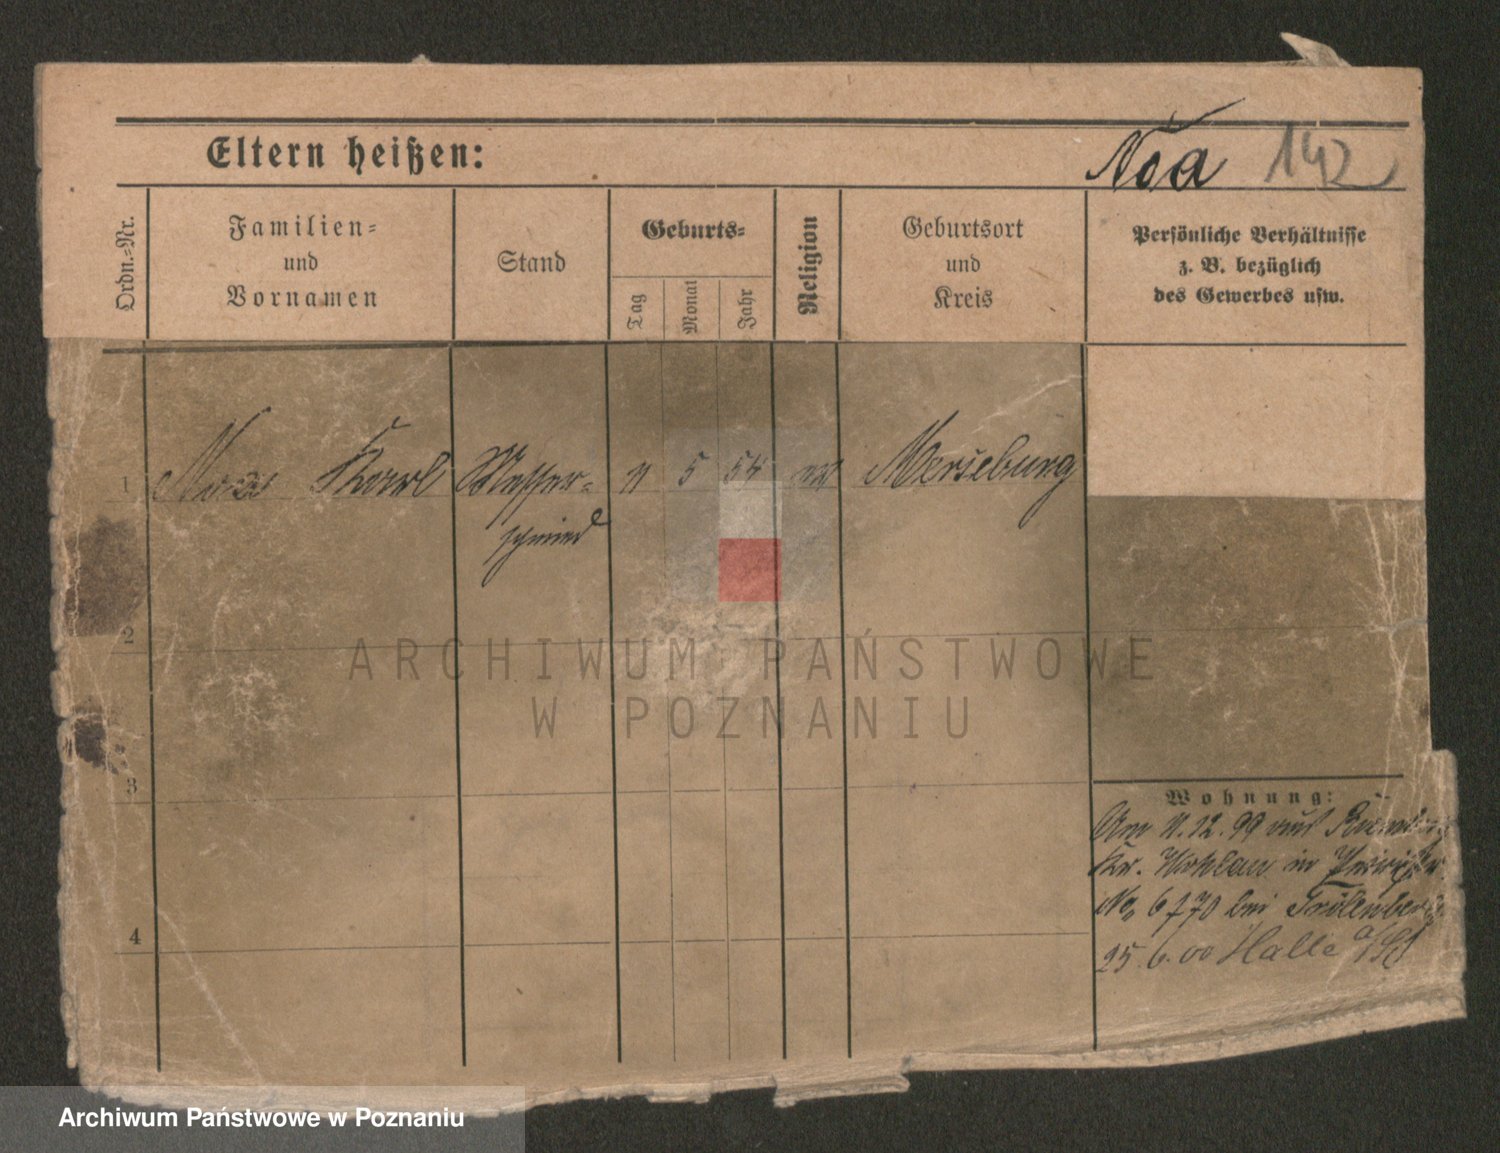 Eltern heißen:
Noa 142
Ordn.=Nr.
Familien=
und
Vornamen
Stand
Geburts=
Tag
Monat
Jahr
Religion
Geburtsort
und
Kreis
Persönliche Verhältnisse
z. B. bezüglich
des Gewerbes usw.
1 Karl Messer= 11 5 54 Merseburg
schmied
2
3
4
Wohnung:
Am 11.12.99 aus
Kr. Wohlau in
No 6770 bei
25.6.00 Halle a/S
ARCHIWUM PAŃSTWOWE
W POZNANIU
Archiwum Państwowe w Poznaniu